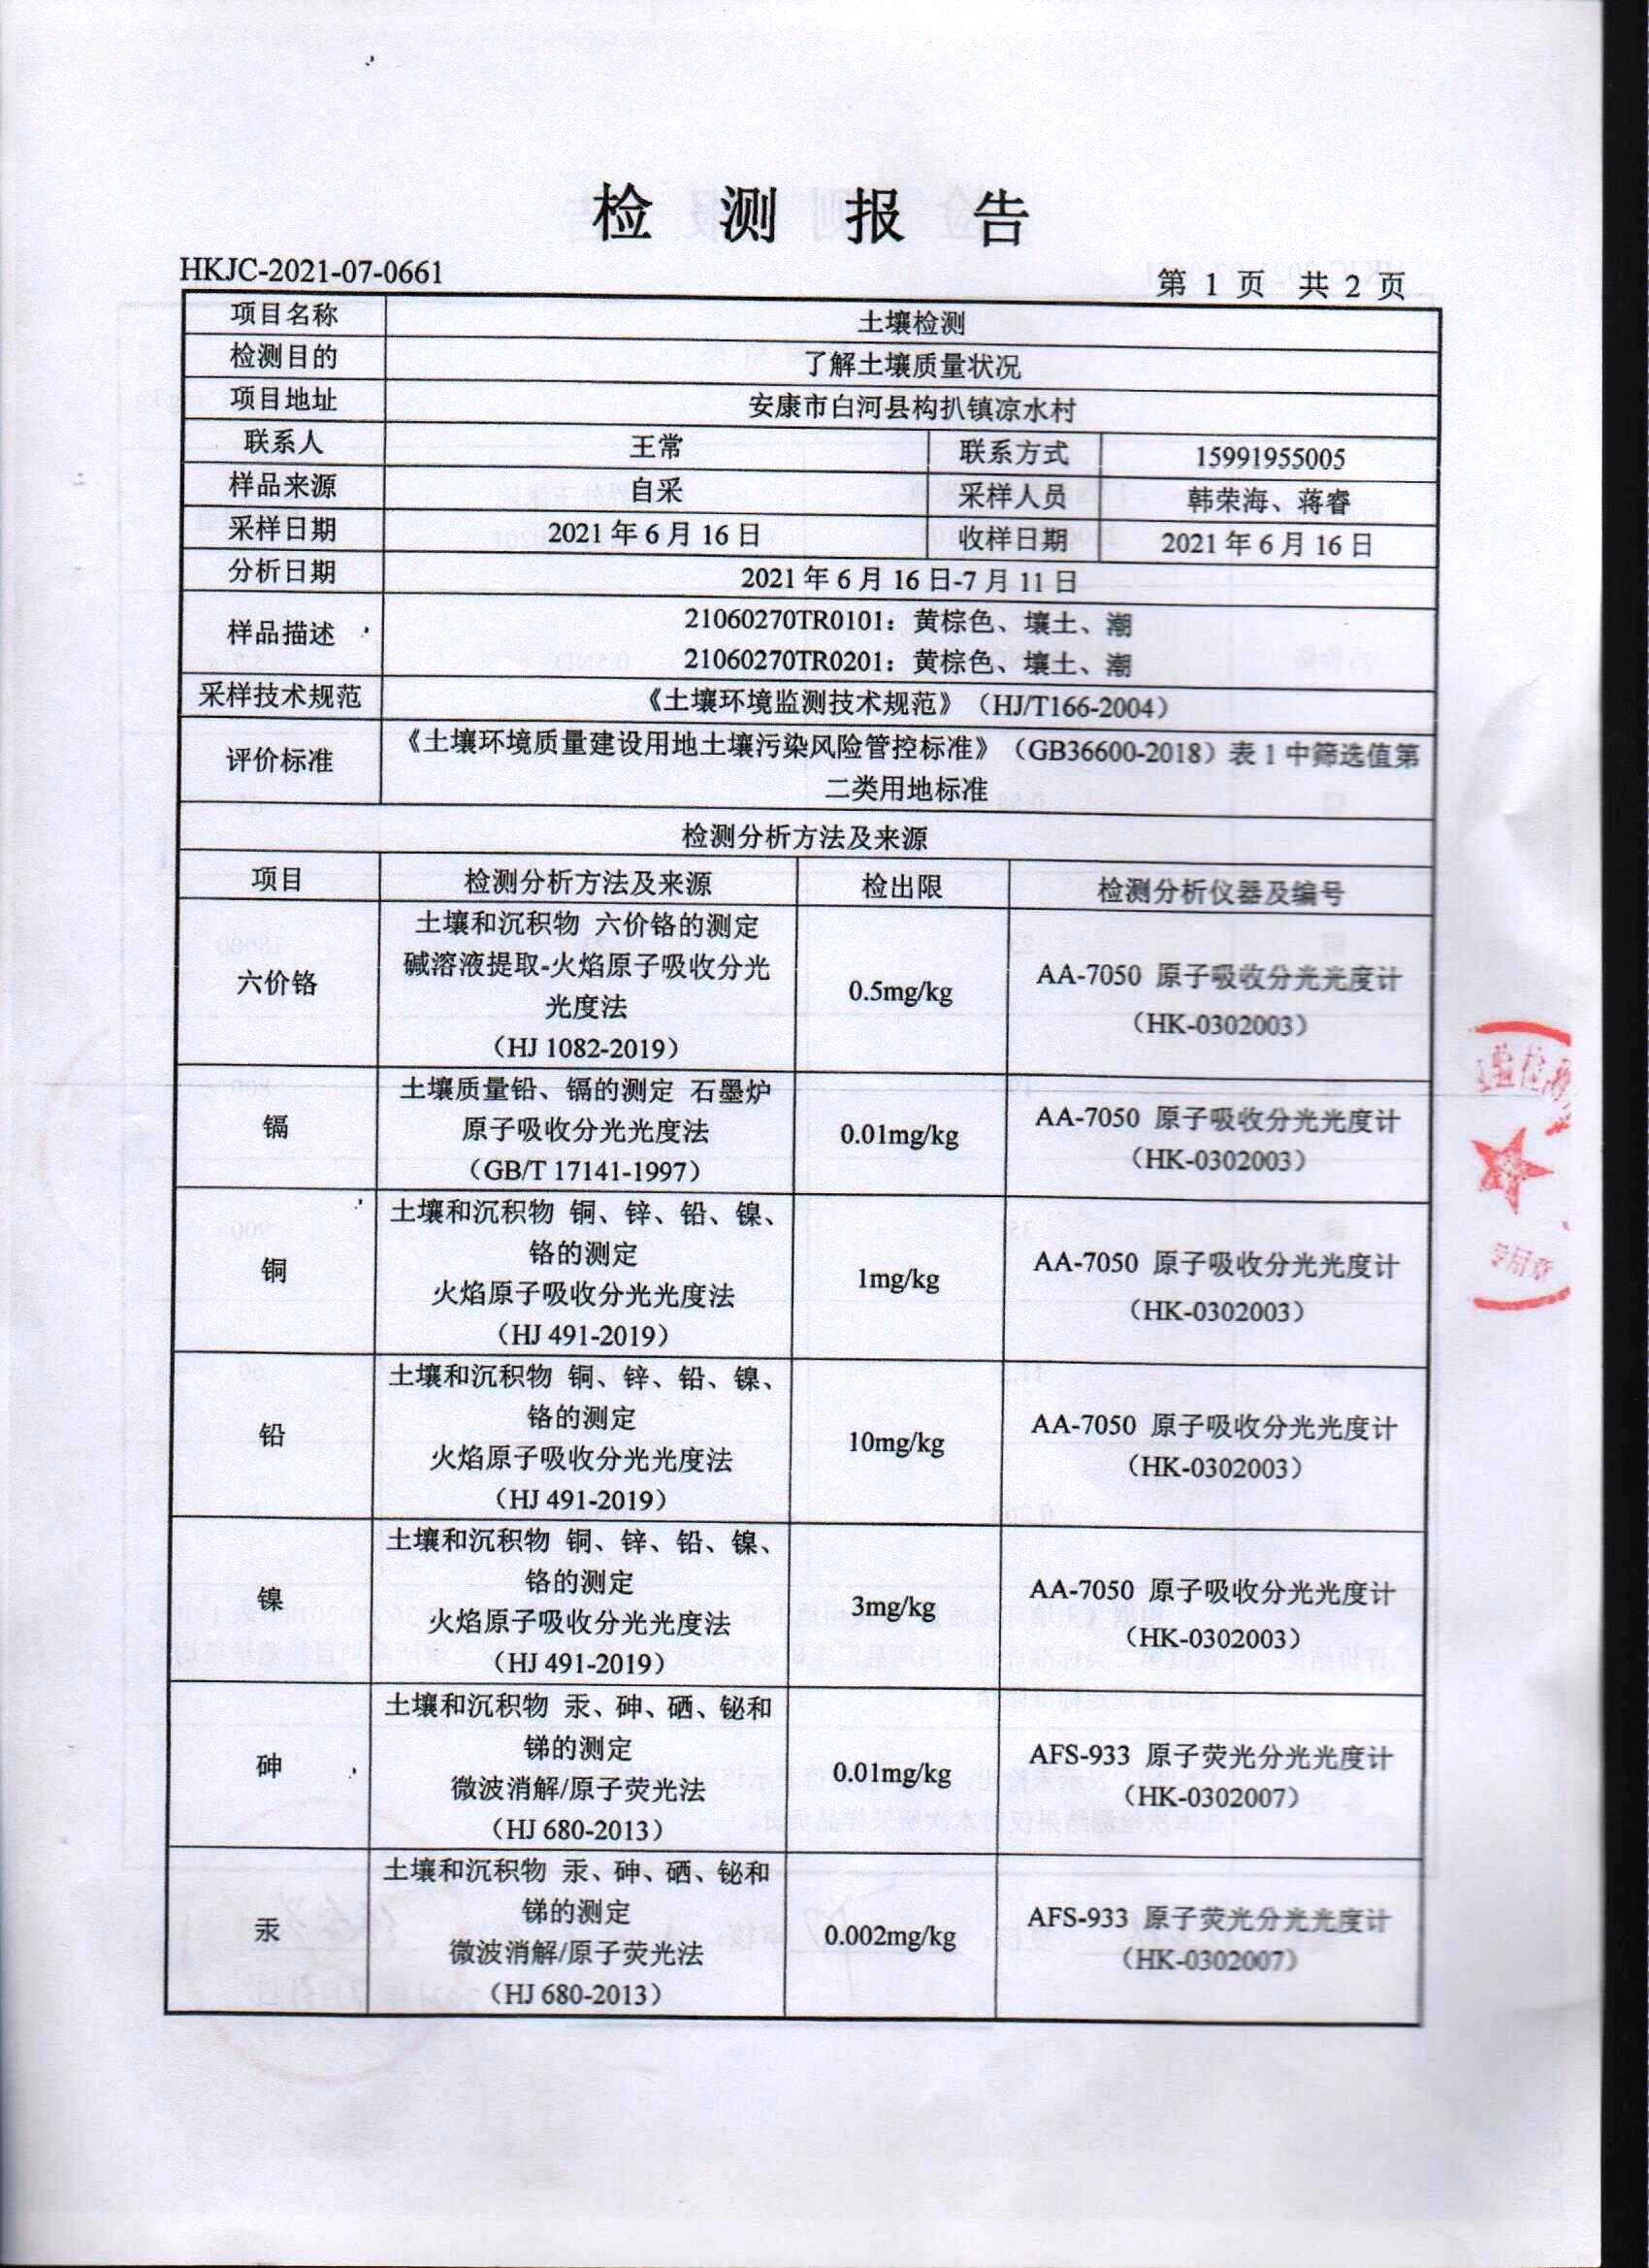 检 测 报 告
HKJC-2021-07-0661
第 1 页 共 2 页
项目名称 土壤检测
检测目的 了解土壤质量状况
项目地址 安康市白河县构扒镇凉水村
联系人 王常 联系方式 15991955005
样品来源 自采 采样人员 韩荣海、蒋睿
采样日期 2021 年 6 月 16 日 收样日期 2021 年 6 月 16 日
分析日期 2021 年 6 月 16 日-7 月 11 日
样品描述
21060270TR0101：黄棕色、壤土、潮
21060270TR0201：黄棕色、壤土、潮
采样技术规范 《土壤环境监测技术规范》（HJ/T166-2004）
评价标准
《土壤环境质量建设用地土壤污染风险管控标准》（GB36600-2018）表 1 中筛选值第
二类用地标准
检测分析方法及来源
项目 检测分析方法及来源 检出限 检测分析仪器及编号
六价铬
土壤和沉积物 六价铬的测定
碱溶液提取-火焰原子吸收分光
光度法
（HJ 1082-2019）
0.5mg/kg
AA-7050 原子吸收分光光度计
（HK-0302003）
镉
土壤质量铅、镉的测定 石墨炉
原子吸收分光光度法
（GB/T 17141-1997）
0.01mg/kg
AA-7050 原子吸收分光光度计
（HK-0302003）
铜
土壤和沉积物 铜、锌、铅、镍、
铬的测定
火焰原子吸收分光光度法
（HJ 491-2019）
1mg/kg
AA-7050 原子吸收分光光度计
（HK-0302003）
铅
土壤和沉积物 铜、锌、铅、镍、
铬的测定
火焰原子吸收分光光度法
（HJ 491-2019）
10mg/kg
AA-7050 原子吸收分光光度计
（HK-0302003）
镍
土壤和沉积物 铜、锌、铅、镍、
铬的测定
火焰原子吸收分光光度法
（HJ 491-2019）
3mg/kg
AA-7050 原子吸收分光光度计
（HK-0302003）
砷
土壤和沉积物 汞、砷、硒、铋和
锑的测定
微波消解/原子荧光法
（HJ 680-2013）
0.01mg/kg
AFS-933 原子荧光分光光度计
（HK-0302007）
汞
土壤和沉积物 汞、砷、硒、铋和
锑的测定
微波消解/原子荧光法
（HJ 680-2013）
0.002mg/kg
AFS-933 原子荧光分光光度计
（HK-0302007）
验检
专用章